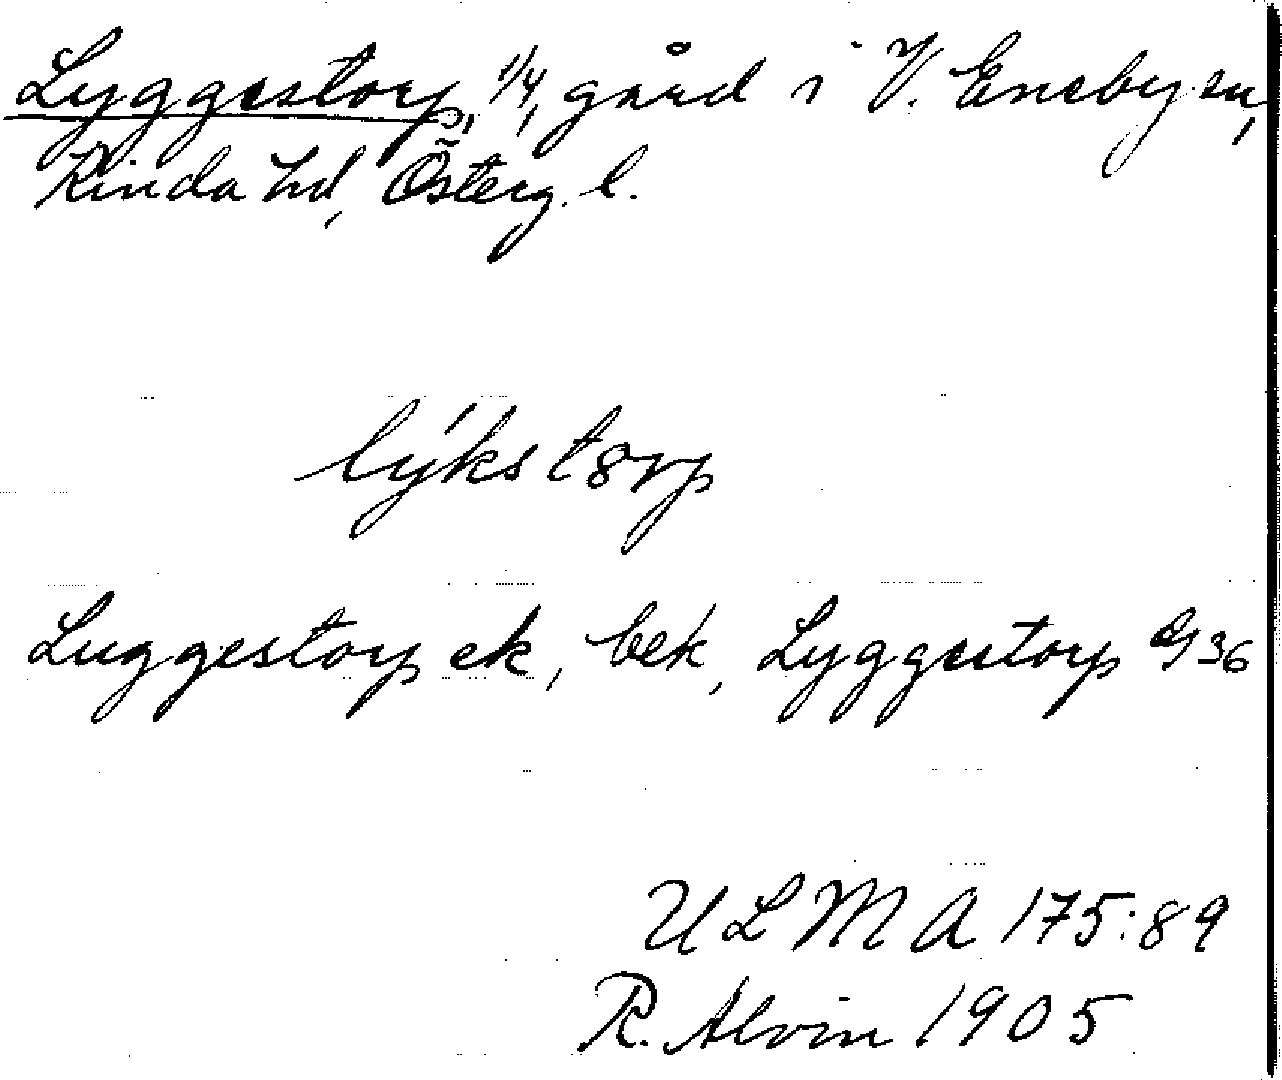 Lyggestorp, 1/4, gård i V. Eneby sn,
Kinda hd, Österg. l.
lýkstorp
Luggestorp ek, bek, Lyggestorp G 36
ULMA 175:89
R. Alvin 1905